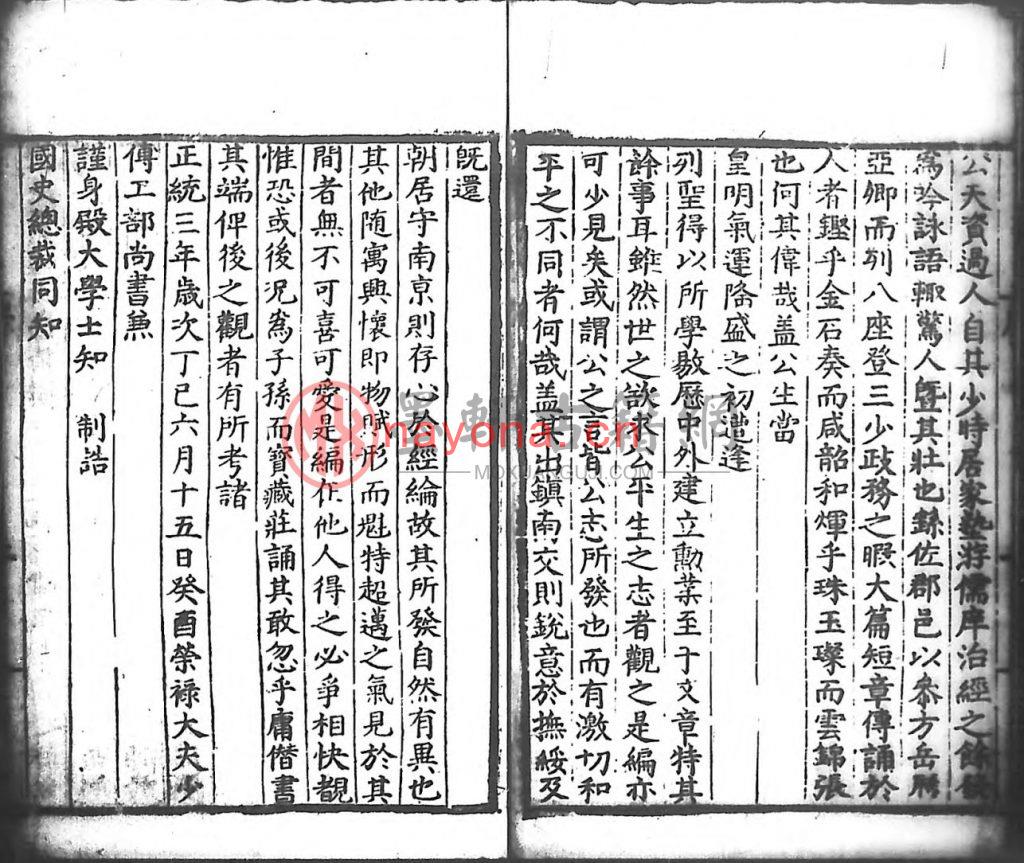 公天資過人自其少時居家塾游儒庠治經之餘發
為吟詠語輒驚人曁其壯也繇佐郡邑以叅方岳歴
亞卿而列八座登三少政務之暇大篇短章傳誦於
人者鏗乎金石奏而咸韶和煇乎珠玉璨而雲錦張
也何其偉哉盖公生當
皇明氣運隆盛之初遭逢
列聖得以所學敭歷中外建立勳業至于文章特其
餘事耳雖然世之欲求公平生之志者觀之是編亦
可少見矣或謂公之言皆公志所發也而有激切和
平之不同者何哉盖其出鎮南交則銳意於撫綏及
旣還
朝居守南京則存心於經綸故其所發自然有異也
其他随寓興懷即物賦形而魁特超邁之氣見於其
間者無不可喜可愛是編在他人得之必爭相快覩
惟恐或後况為子孫而寶藏莊誦其敢忽乎庸僭書
其端俾後之觀者有所考諸
正統三年歲次丁巳六月十五日癸酉榮祿大夫少
傅工部尚書兼
謹身殿大學士知 制誥
國史總裁同知
墨軒古籍網
nayona.cn